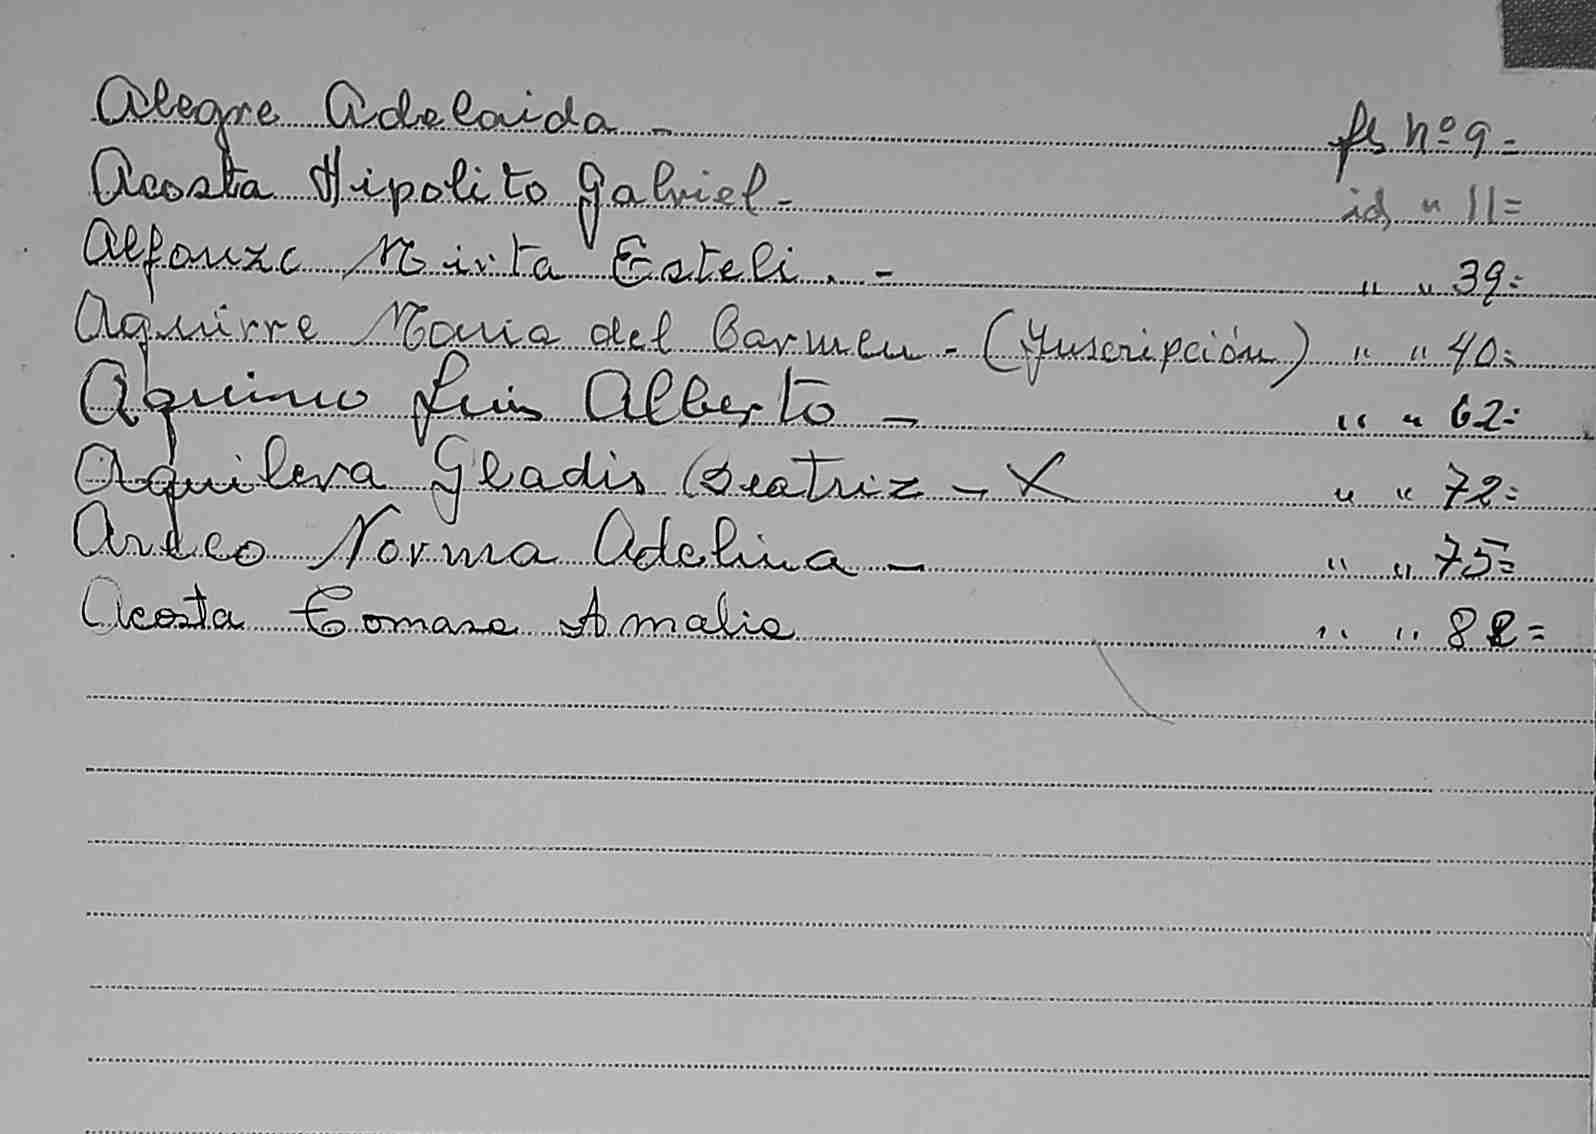 Alegre Adelaida - fs nº 9=
Acosta Hipolito Gabriel - id " 11=
Alfonzo Mirta Esteli. - " " 39=
Aguirre Maria del Carmen - (Inscripción) " " 40=
Aquino Luis Alberto - " " 62=
Aquilera Gladis Beatriz - X " " 72=
Areco Norma Adelina - " " 75=
Acosta Tomasa Amalia " " 82=